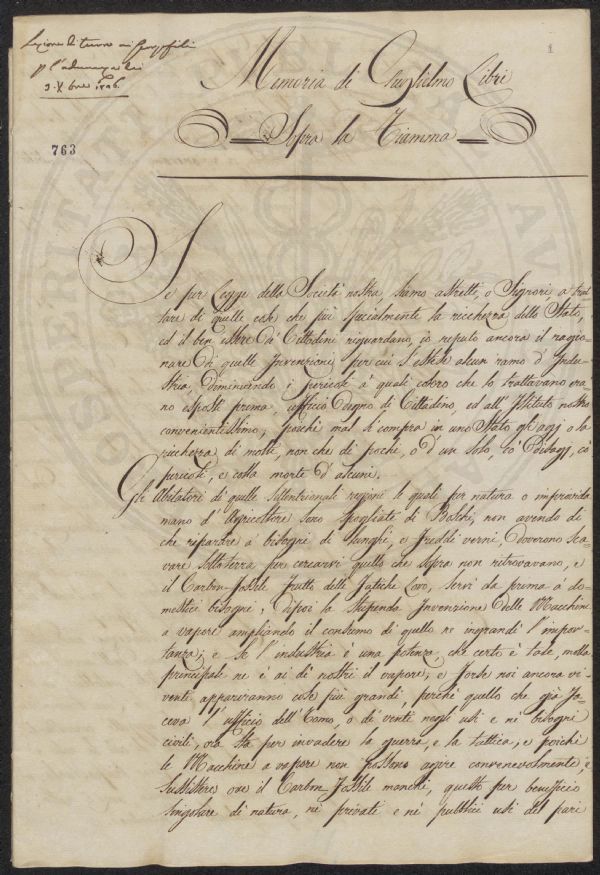 Lezione di turno ai Georgofili
p l'adunanza dei
3. Xbre
1
763
Memoria di Guglielmo Libri
Sopra la Fiamma
Se per Legge della Società nostra, siamo astretti, o Signori, a trat=
tare di quelle cose che più specialmente la ricchezza dello Stato,
ed il ben essere dà Cittadini riguardano, io reputo ancora il ragio=
nare di quelle Invenzioni per cui s'estese alcun ramo d'Indu=
stria, diminuendo i pericoli à quali coloro che lo trattavano era=
no esposti prima, ufficio degno di Cittadino, ed all'Istituto nostro
convenientissimo; poichè mal si compra in uno Stato gli agj o la
ricchezza di molti, non che di pochi, o d'un solo, cò disagj, cò
pericoli, e colla morte d'alcuni.
Gli Abitatori di quelle settentrionali regioni le quali per natura o improvida
mano d'Agricoltore sono spogliate di Boschi, non avendo di
che riparare à bisogni di lunghi, e freddi verni, doverono sca=
vare sotterra per cercarvi quello che sopra non ritrovavano, e
il Carbon-Fossile frutto delle fatiche Loro, servì da prima à do=
mestici bisogni; dipoi la stupenda Invenzione delle Macchine
a vapore ampliando il consumo di quello ne ingrandì l'impor=
tanza; e se l'industria è una potenza, che certo è tale, molla
principale ne è ai dì nostri il vapore; e forse noi ancora vi=
venti appariranno cose più grandi, perchè quello che già fa=
ceva l'ufficio dell'Uomo, o dè venti negli usi e nè bisogni
civili, ora sta per invadere la guerra, e la tattica; e poichè
le Macchine a vapore non possono agire convenevolmente, e
sussistere ove il Carbon-Fossile manchi, questo per beneficio
singolare di natura, nè privati e nè pubblici usi del pari